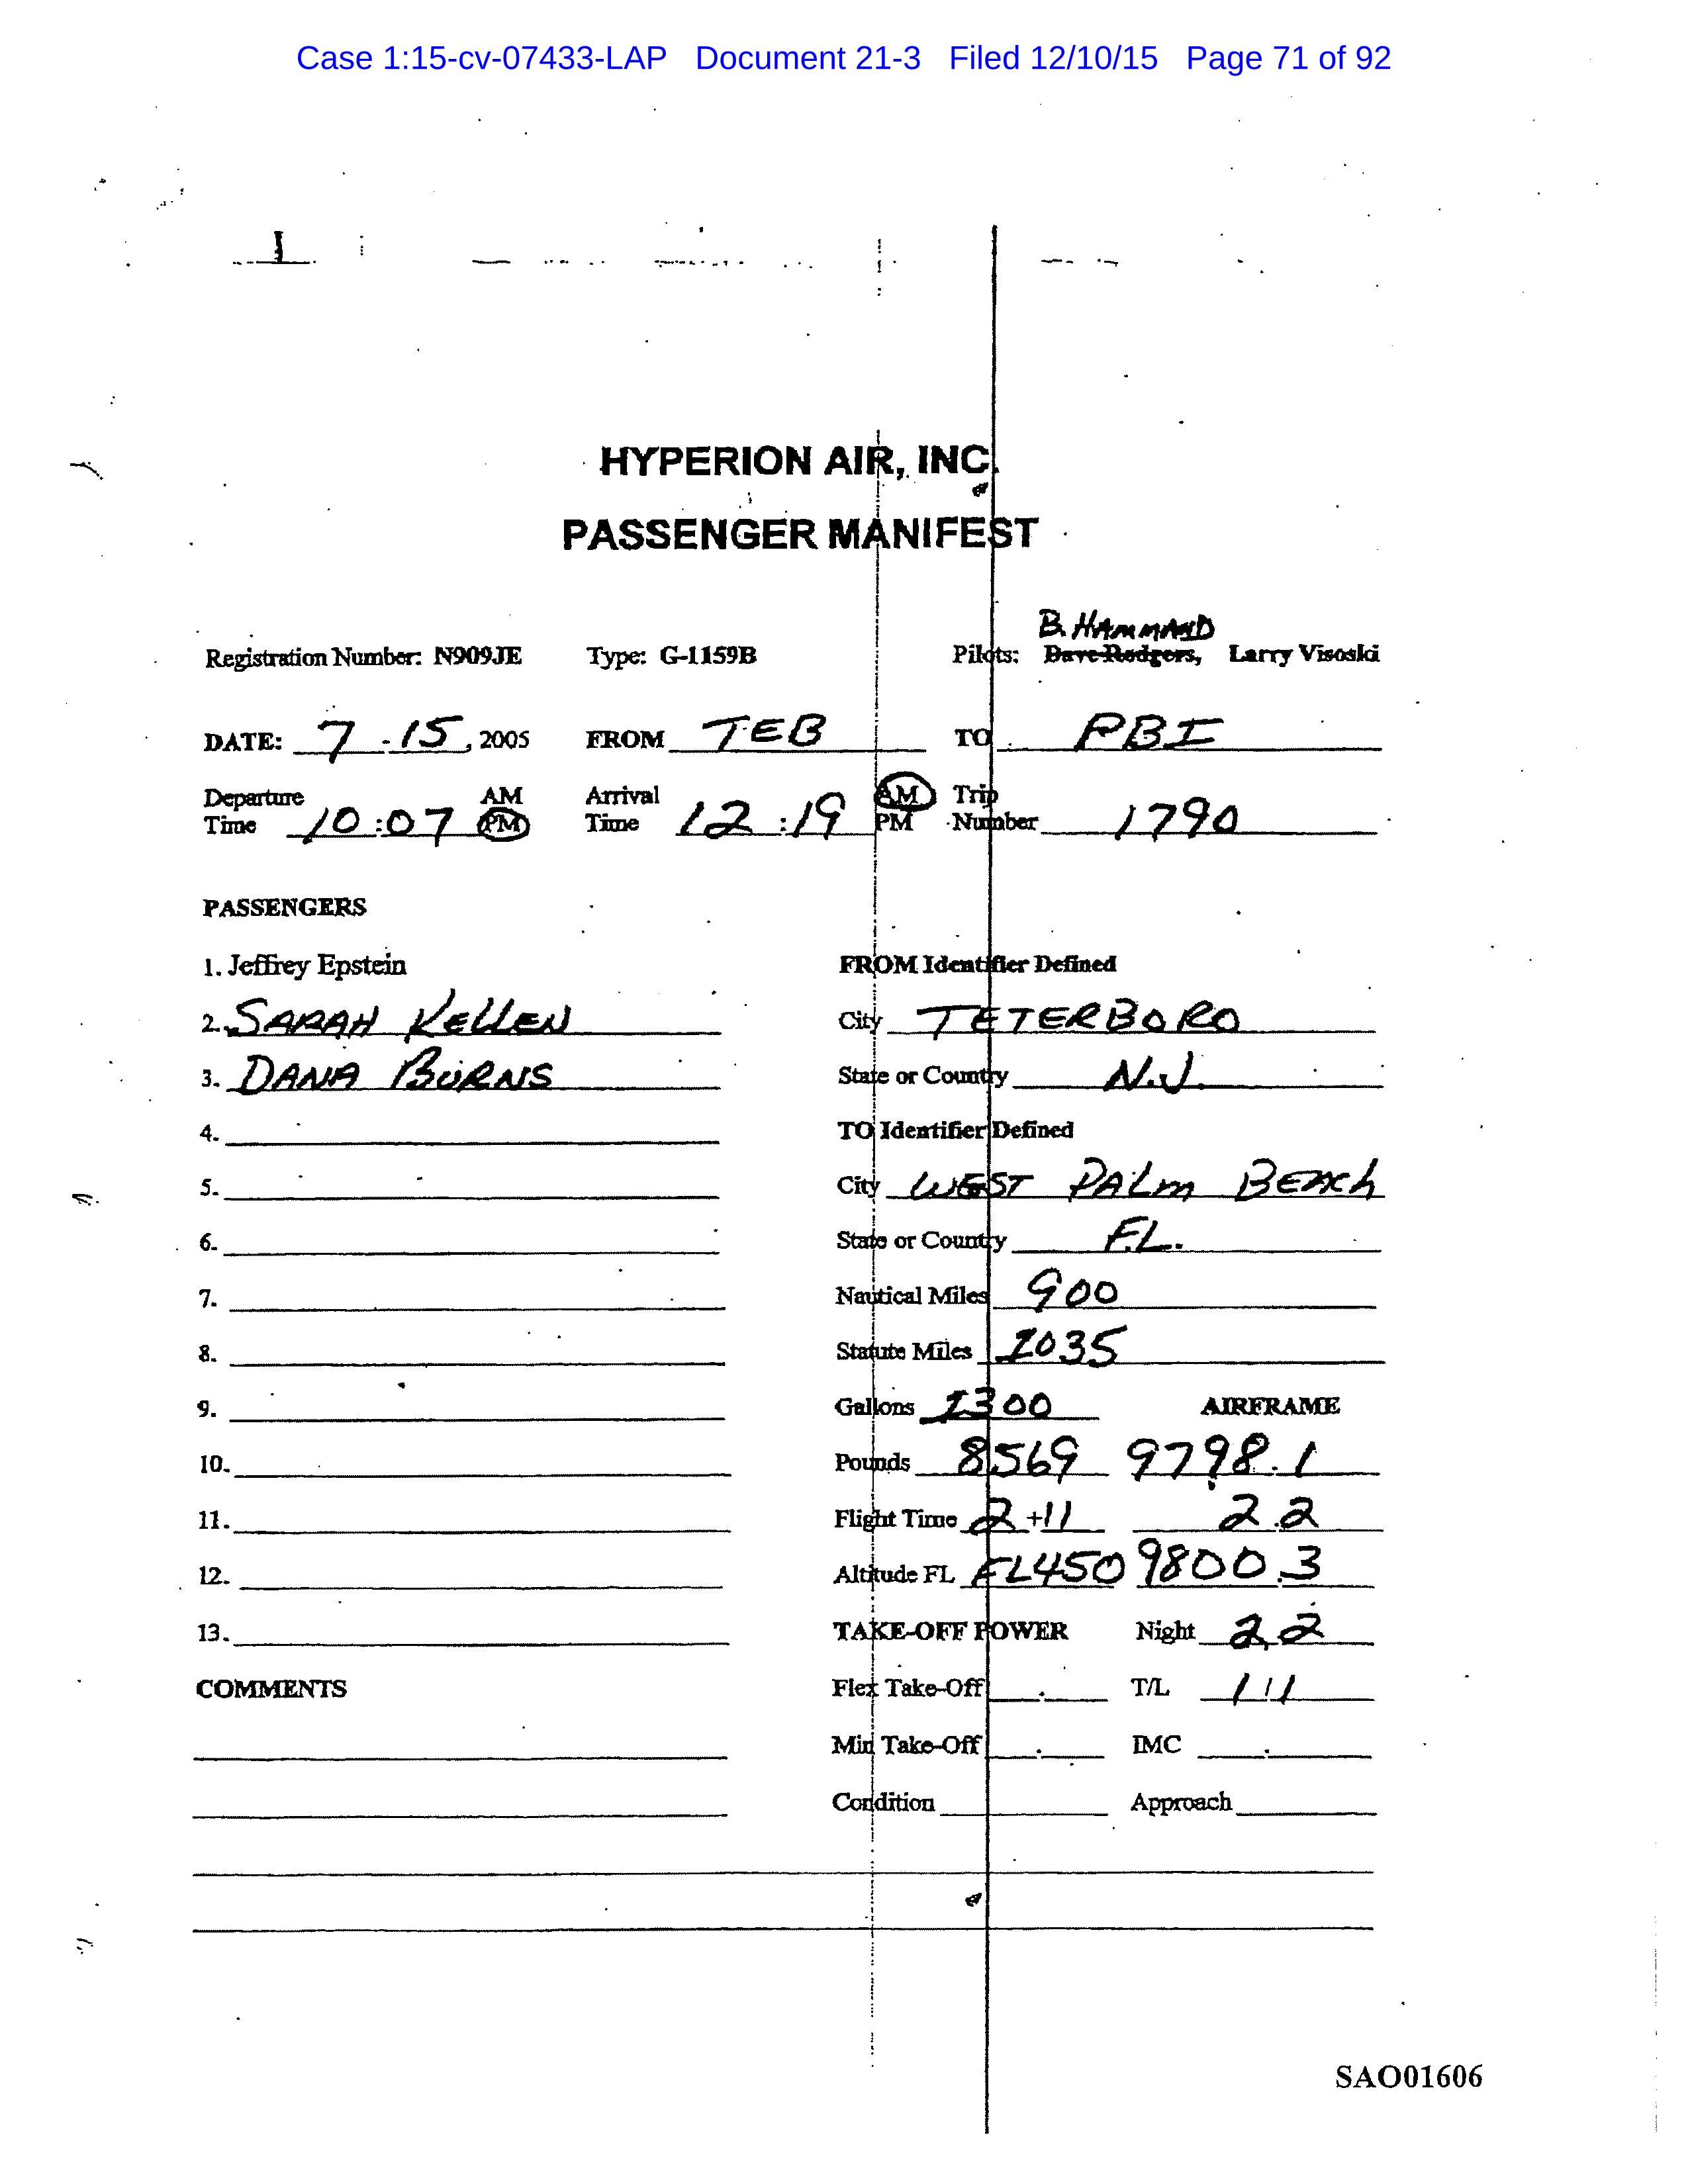 Case 1:15-cv-07433-LAP Document 21-3 Filed 12/10/15 Page 71 of 92
HYPERION AIR, INC.
PASSENGER MANIFEST
B. HAMMAND
Registration Number: N909JE Type: G-1159B Pilots: Dave Rodgers, Larry Visoski
DATE: 7-15, 2005 FROM TEB TO PBI
Departure Time 10:07 AM PM Arrival Time 12:19 AM PM Trip Number 1790
PASSENGERS
1. Jeffrey Epstein
2. SARAH KELLEN
3. DANA BURNS
4.
5.
6.
7.
8.
9.
10.
11.
12.
13.
COMMENTS
FROM Identifier Defined
City TETERBORO
State or Country N.J.
TO Identifier Defined
City WEST PALM BEACH
State or Country FL.
Nautical Miles 900
Statute Miles 1035
Gallons 1300 AIRFRAME
Pounds 8569 9798.1
Flight Time 2+11 2.2
Altitude FL FL450 9800.3
TAKE-OFF POWER Night 2.2
Flex Take-Off . T/L 1/1
Min Take-Off . IMC .
Condition Approach
SAO01606